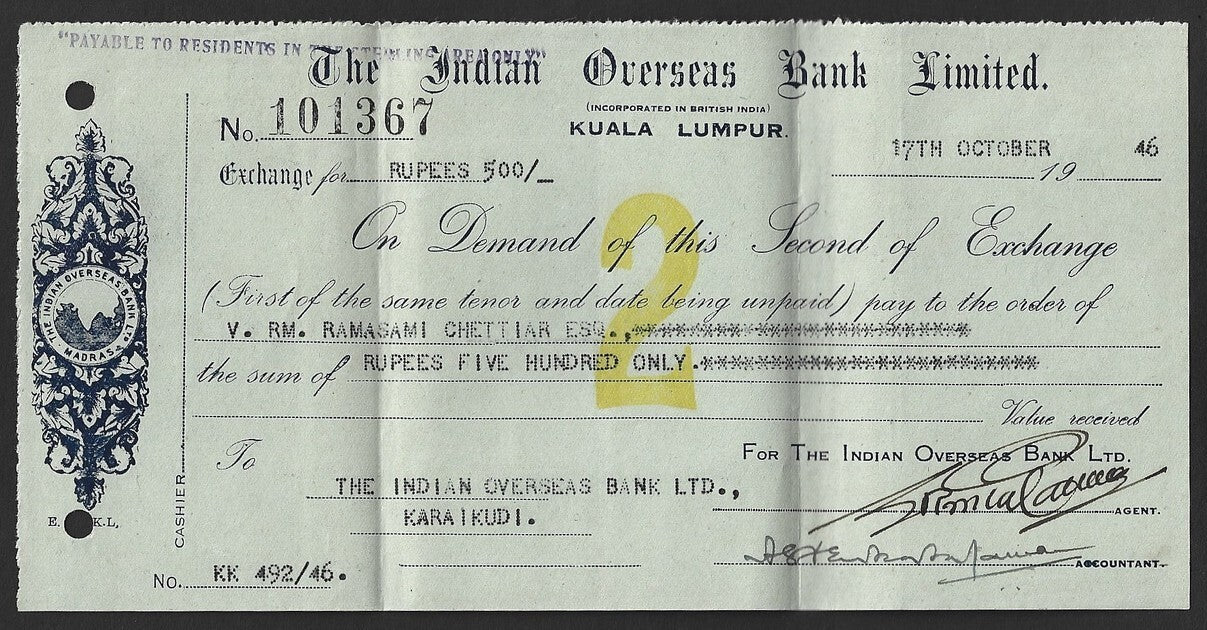 "PAYABLE TO RESIDENTS IN THE STERLING AREA ONLY"
The Indian Overseas Bank Limited.
(INCORPORATED IN BRITISH INDIA)
KUALA LUMPUR.
No. 101367
17TH OCTOBER 19 46
Exchange for RUPEES 500/_
On Demand of this Second of Exchange
2
(First of the same tenor and date being unpaid) pay to the order of
V. RM. RAMASAMI CHETTIAR ESQ.,
the sum of RUPEES FIVE HUNDRED ONLY.
Value received
THE INDIAN OVERSEAS BANK LTD.
MADRAS.
To
For The Indian Overseas Bank Ltd.
THE INDIAN OVERSEAS BANK LTD.,
KARAIKUDI.
AGENT.
ACCOUNTANT.
CASHIER
E. K.L,
No. KK 492/46.